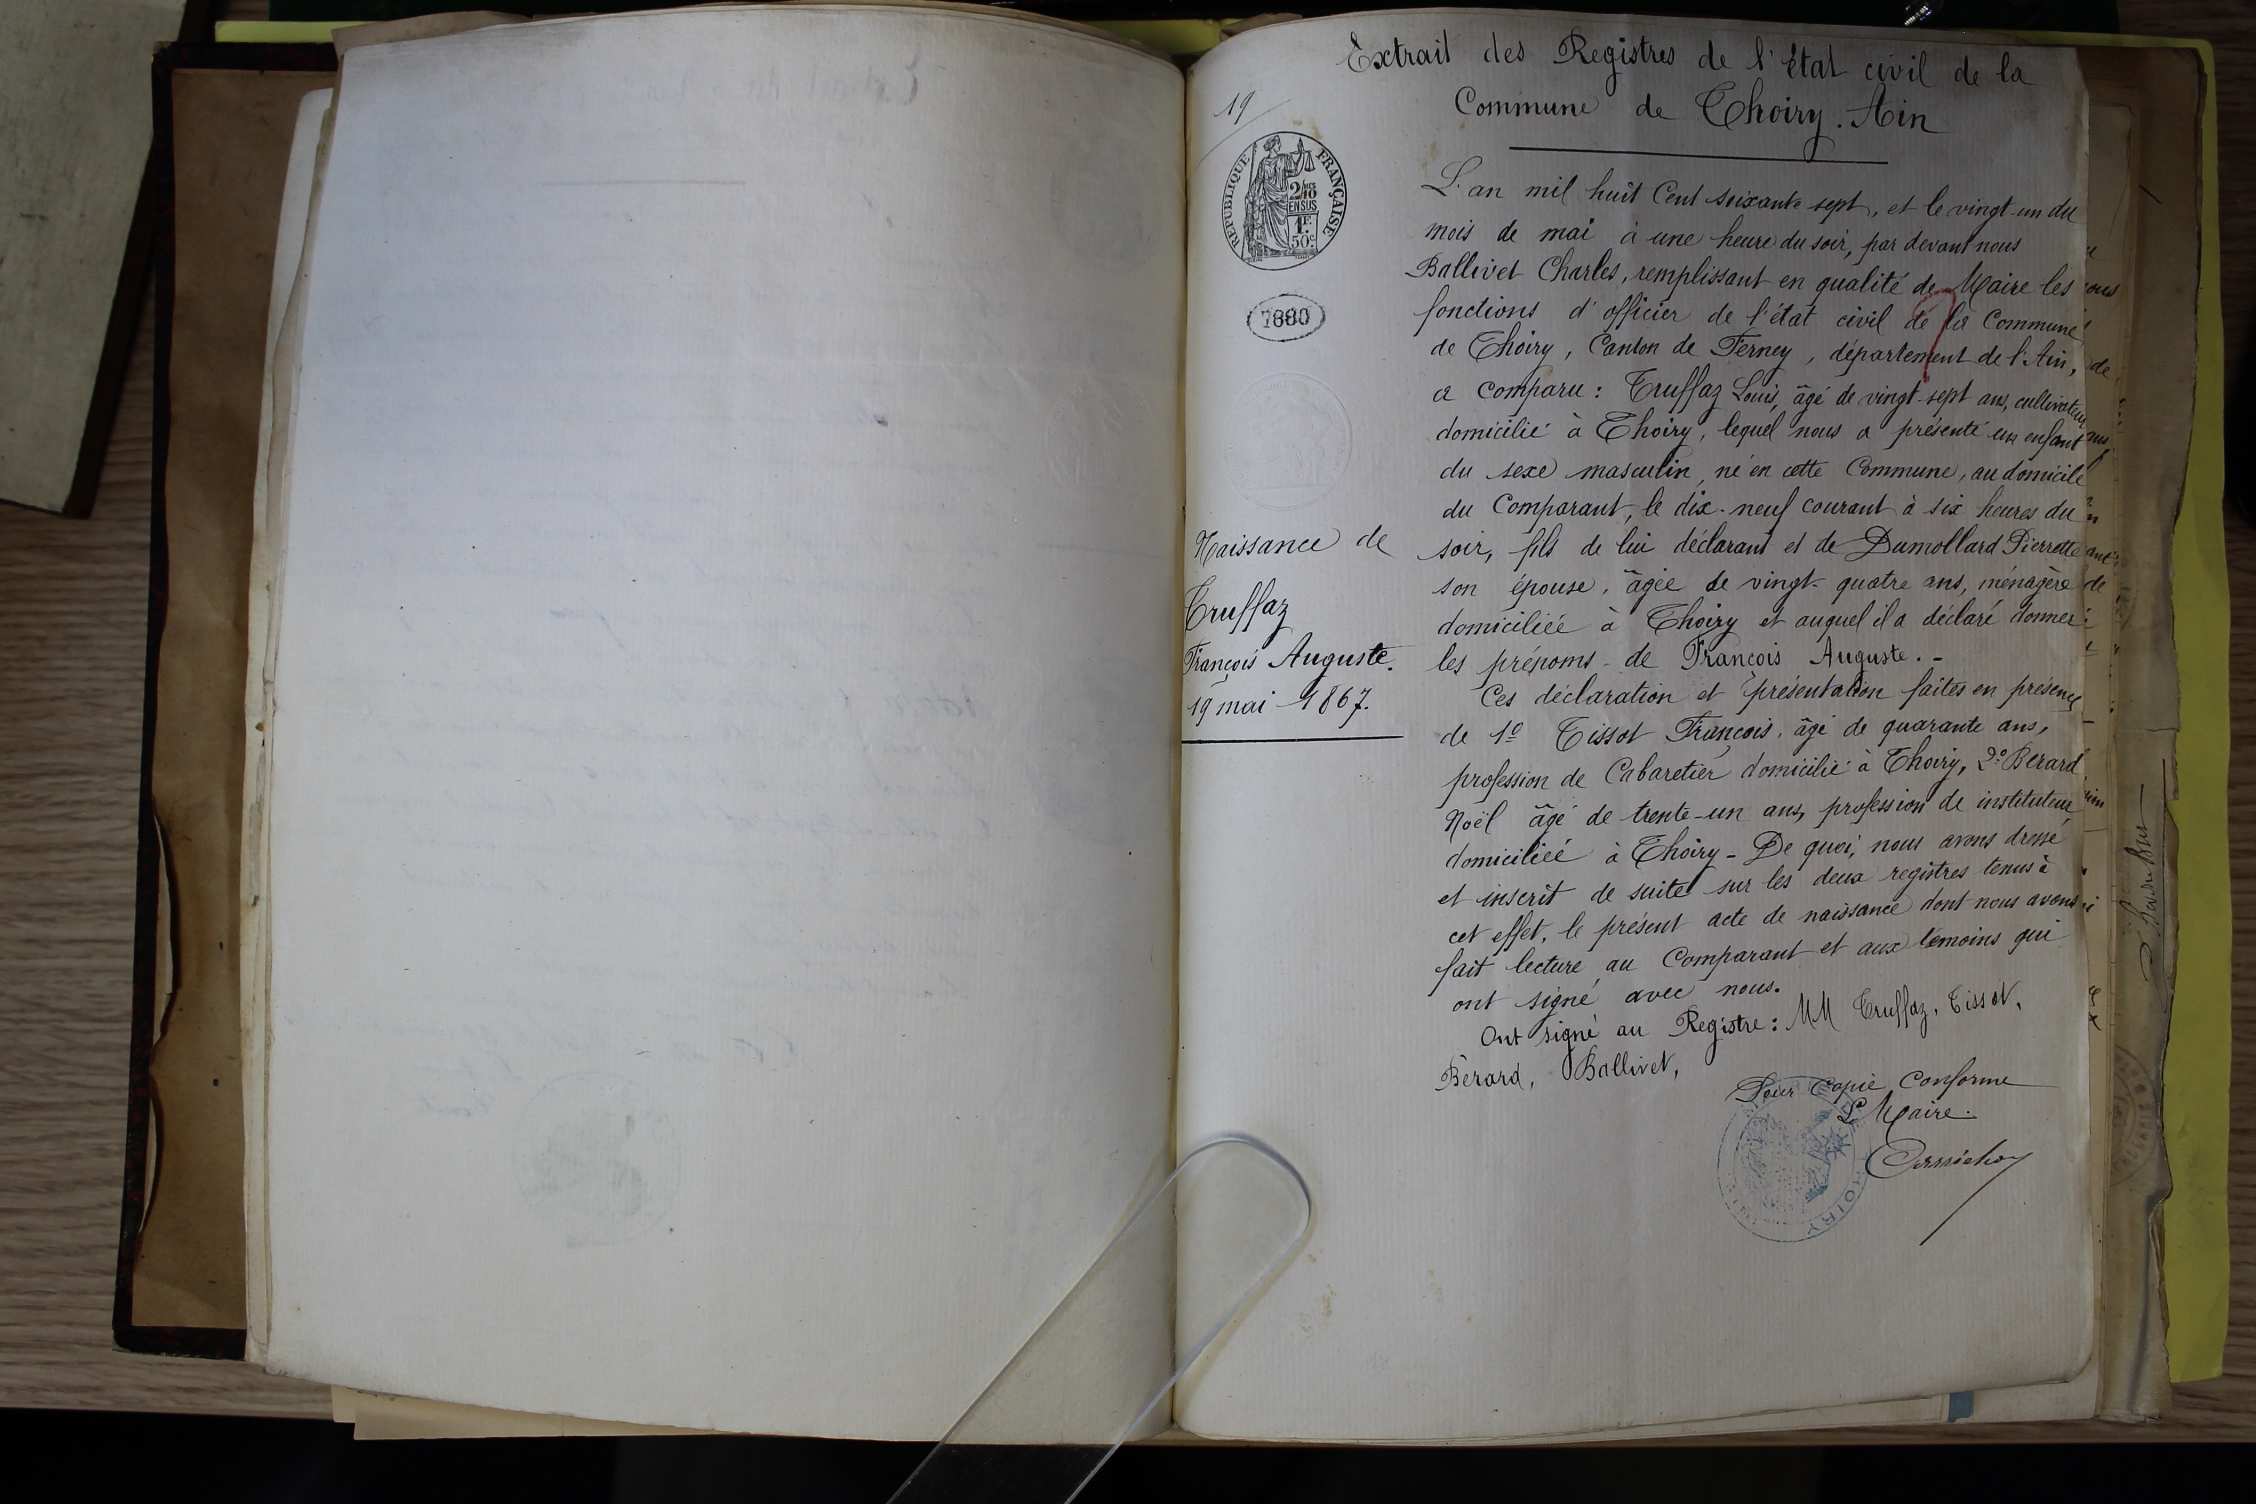 Extrait des Registres de l'État civil de la
Commune de Thoiry. Ain
19
RÉPUBLIQUE FRANÇAISE
2/10 EN SUS
1F. 50c
1880
L'an mil huit Cent soixante sept, et le vingt-un du
mois de mai à une heure du soir, par devant nous
Ballivet Charles, remplissant en qualité de Maire les
fonctions d'officier de l'état civil de la Commune
de Thoiry, Canton de Ferney, département de l'Ain,
a comparu : Truffaz Louis, âgé de vingt-sept ans, cultivateur
domicilié à Thoiry, lequel nous a présenté un enfant
du sexe masculin, né en cette Commune, au domicile
du Comparant, le dix-neuf courant à six heures du
soir, fils de lui déclarant et de Dumollard Pierrette
son épouse, âgée de vingt-quatre ans, ménagère
domiciliée à Thoiry et auquel il a déclaré donner
les prénoms de François Auguste. -
Naissance de
Truffaz
François Auguste.
19 mai 1867.
Ces déclaration et présentation faites en présence
de 1º Tissot François, âgé de quarante ans,
profession de Cabaretier domicilié à Thoiry, 2º Berard
Noël âgé de trente-un ans, profession de instituteur
domiciliéé à Thoiry - De quoi, nous avons dressé
et inscrit de suite sur les deux registres tenus à
cet effet, le présent acte de naissance dont nous avons
fait lecture au Comparant et aux témoins qui
ont signé avec nous.
Ont signé au Registre : MM Truffaz, Tissot,
Bérard, Ballivet,
Pour Copie Conforme
Le Maire.
THOIRY